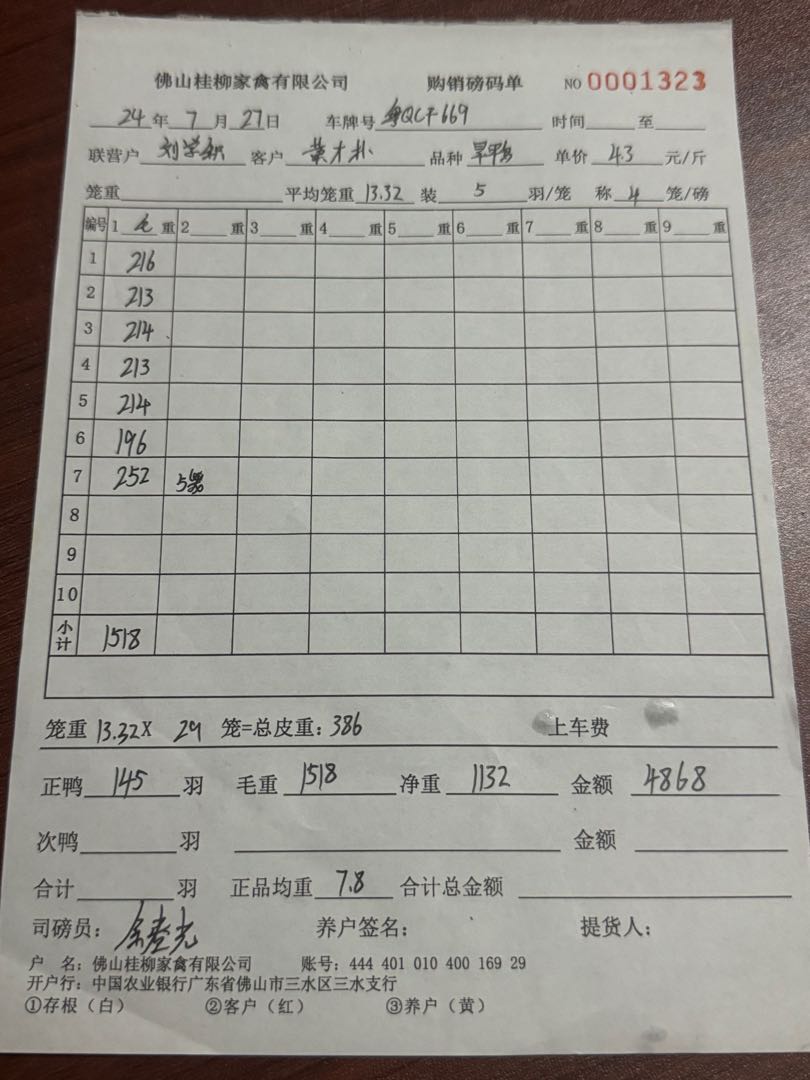 佛山桂柳家禽有限公司 购销磅码单 NO 0001323
24年 7月 27日 车牌号 粤QCF669 时间 至
联营户 刘 客户 黄才朴 品种 旱鸭 单价 43 元/斤
笼重 平均笼重 13.32 装 5 羽/笼 称 4 笼/磅
编号 1 毛 重 2 重 3 重 4 重 5 重 6 重 7 重 8 重 9 重
1 216
2 213
3 214
4 213
5 214
6 196
7 252 5
8
9
10
小计 1518
笼重 13.32 X 29 笼=总皮重: 386 上车费
正鸭 145 羽 毛重 1518 净重 1132 金额 4868
次鸭 羽 金额
合计 羽 正品均重 7.8 合计总金额
司磅员: 养户签名: 提货人:
户 名: 佛山桂柳家禽有限公司 账号: 444 401 010 400 169 29
开户行: 中国农业银行广东省佛山市三水区三水支行
①存根（白） ②客户（红） ③养户（黄）